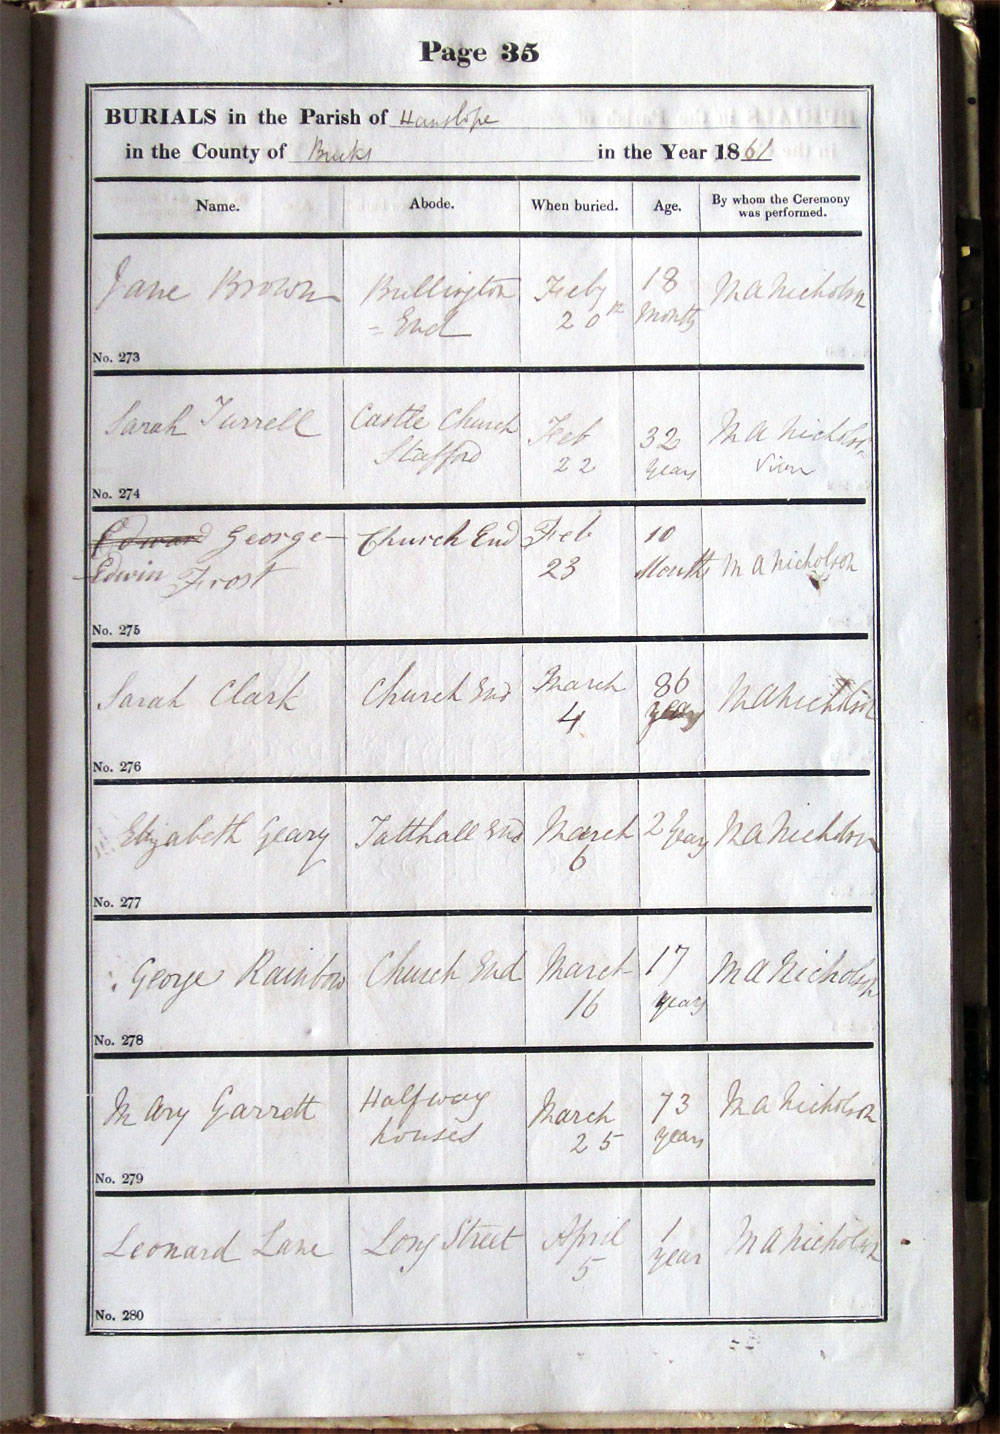 Page 35
BURIALS in the Parish of Hanslope
in the County of Bucks in the Year 1861
Name. Abode. When buried. Age. By whom the Ceremony was performed.
Jane Brown Bullington Feby 18 M A Nicholson
= End 20th Months
No. 273
Sarah Turrell Castle Church Feb 32 M A Nicholson
Stafford 22 years
No. 274
Edward George Church End Feb 10
Edwin Frost 23 Months M A Nicholson
No. 275
Sarah Clark Church End March 86 M A Nicholson
4 years
No. 276
Elizabeth Geary Tatthall End March 2 Years M A Nicholson
6
No. 277
George Rainbow Church End March 17 M A Nicholson
16 years
No. 278
Mary Garrett Halfway March 73 M A Nicholson
houses 25 years
No. 279
Leonard Lane Long Street April 1 M A Nicholson
5 year
No. 280